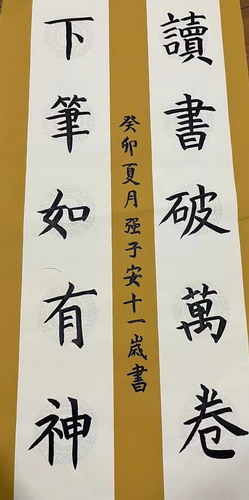 讀書破萬卷
下筆如有神
癸卯夏月强子安十一歲書